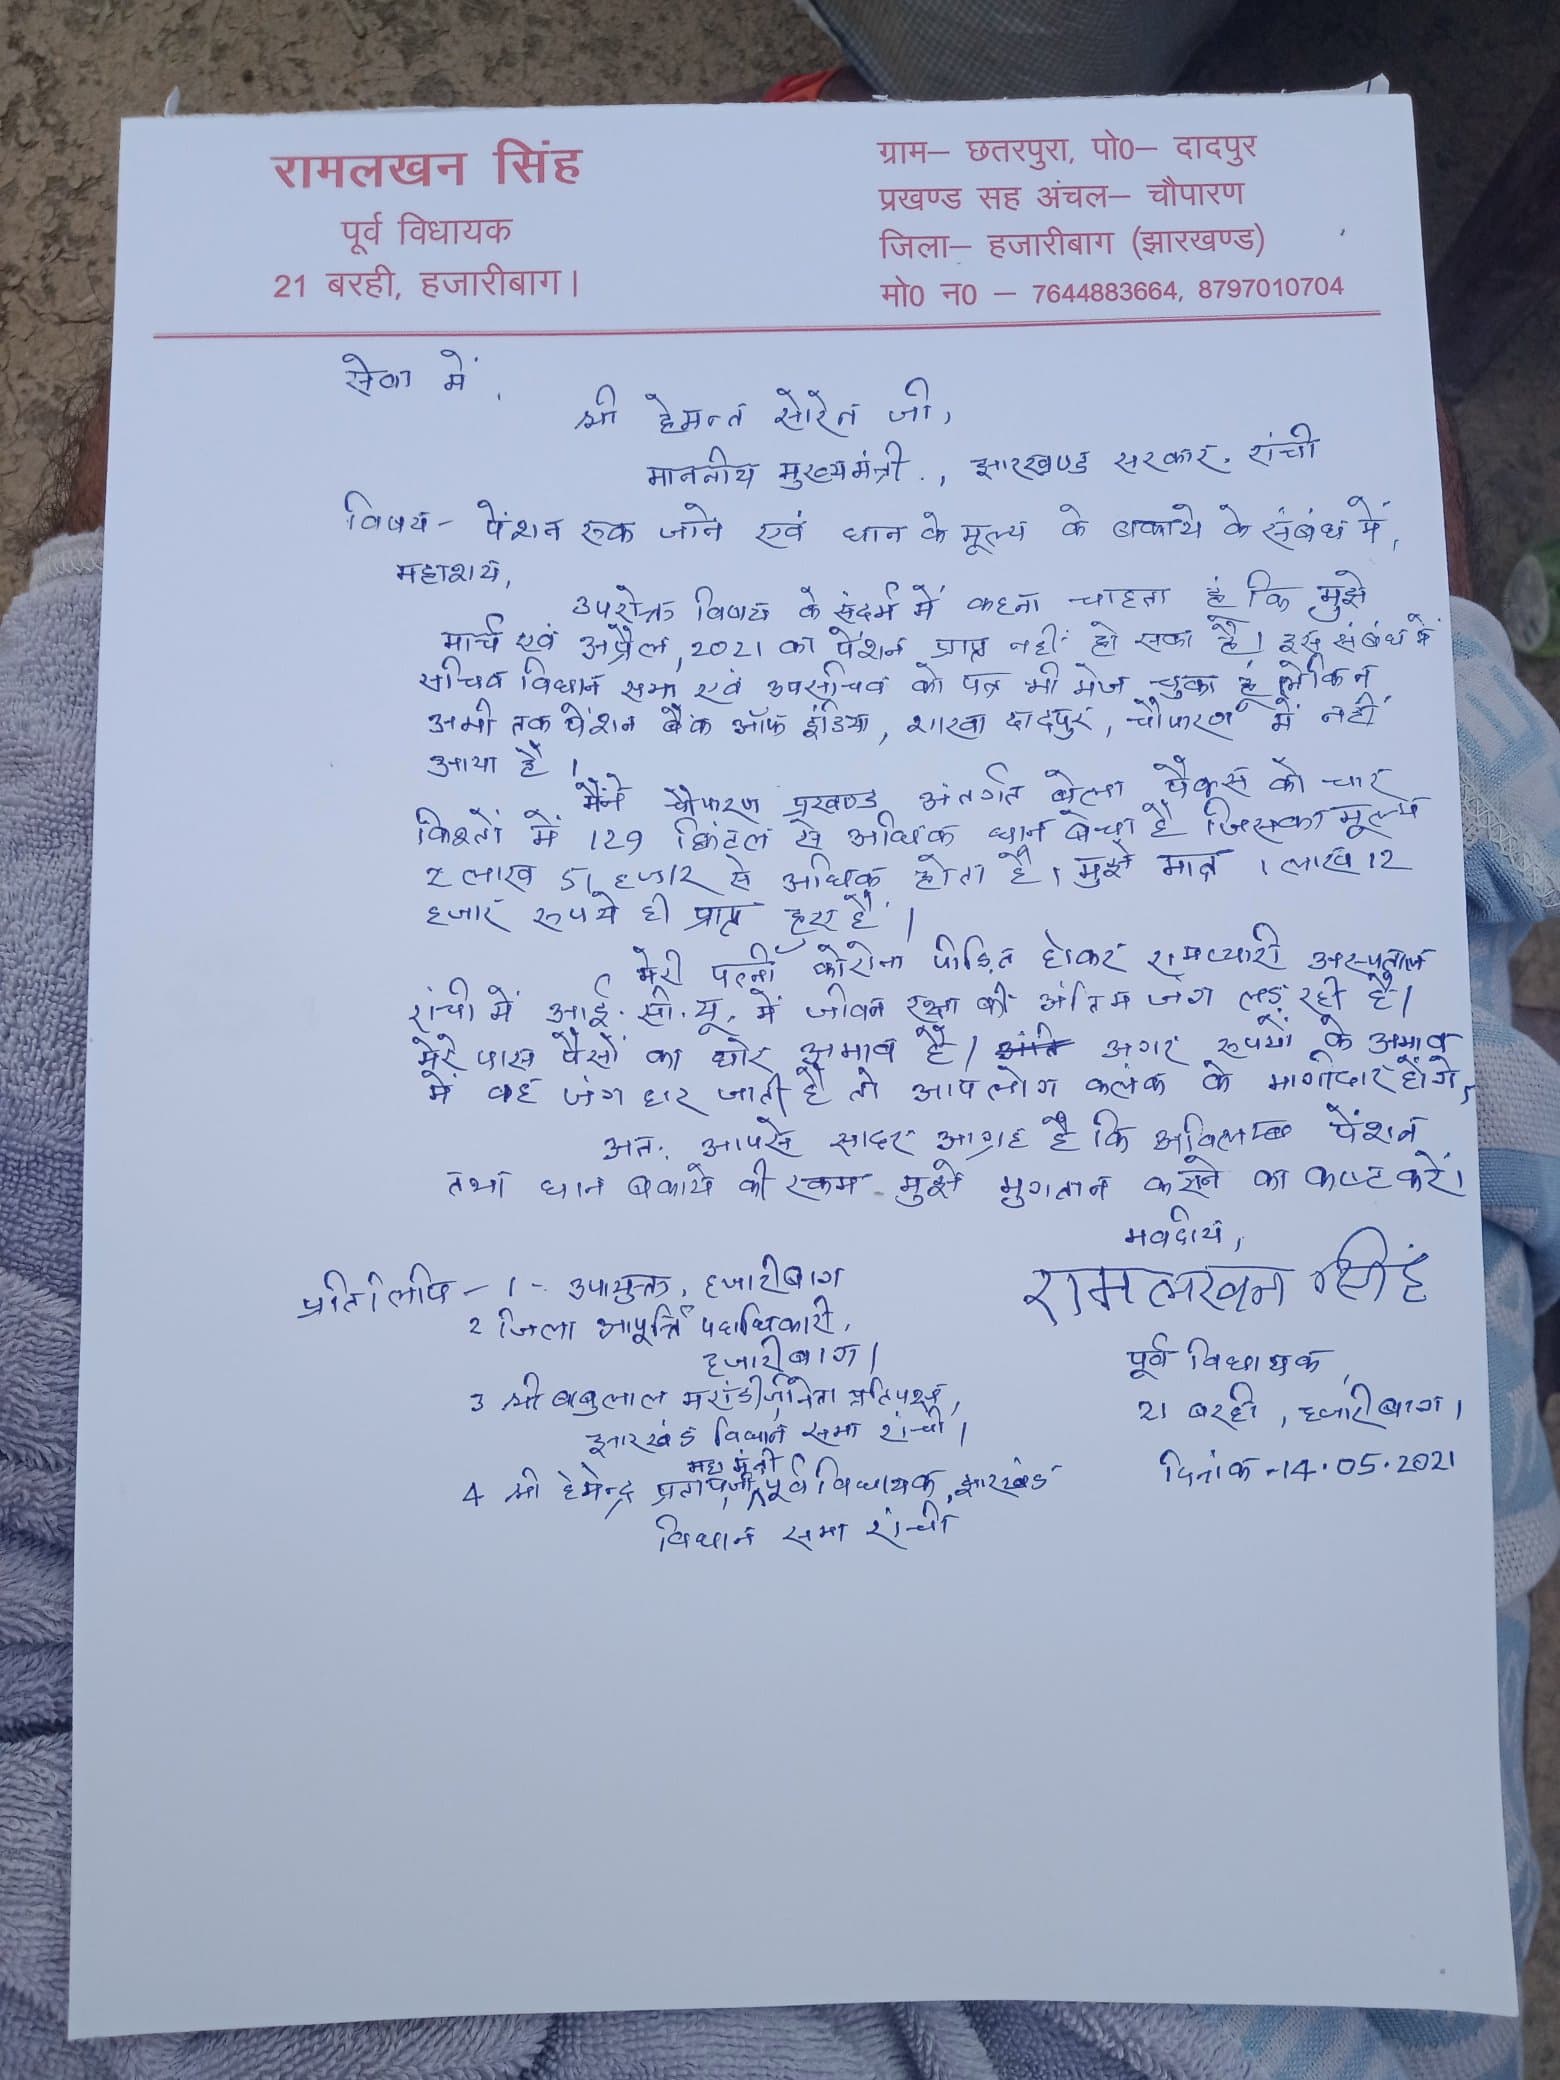 रामलखन सिंह
पूर्व विधायक
21 बरही, हजारीबाग।
ग्राम– छतरपुरा, पो0– दादपुर
प्रखण्ड सह अंचल– चौपारण
जिला– हजारीबाग (झारखण्ड)
मो0 न0 – 7644883664, 8797010704
सेवा में,
श्री हेमन्त सोरेन जी,
माननीय मुख्यमंत्री., झारखण्ड सरकार. रांची
विषय - पेंशन रूक जाने एवं धान के मूल्य के बकाये के संबंध में,
महाशय,
उपरोक्त विषय के संदर्भ में कहना चाहता हूं कि मुझे
मार्च एवं अप्रैल, 2021 का पेंशन प्राप्त नहीं हो सका है। इस संबंध में
सचिव विधान सभा एवं उपसचिव को पत्र भी भेज चुका हूं लेकिन
अभी तक पेंशन बैंक ऑफ इंडिया, शाखा दादपुर, चौपारण में नहीं
आया है।
मैंने चौपारण प्रखण्ड अंतर्गत बेला पैक्स को चार
किश्तों में 129 क्विंटल से अधिक धान बेचा है जिसका मूल्य
2 लाख 51 हजार से अधिक होता है। मुझे मात्र 1 लाख 12
हजार रूपये ही प्राप्त हुए हैं।
मेरी पत्नी कोरोना पीड़ित होकर रामप्यारी अस्पताल
रांची में आई. सी. यू. में जीवन रक्षा की अंतिम जंग लड़ रही है।
मेरे पास पैसों का घोर अभाव है। अगर रूपयों के अभाव
में वह जंग हार जाती है तो आप लोग कलंक के भागीदार होंगे,
अतः आपसे सादर आग्रह है कि अविलम्ब पेंशन
तथा धान बकाये की रकम मुझे भुगतान कराने का कष्ट करें।
भवदीय,
रामलखन सिंह
पूर्व विधायक,
21 बरही, हजारीबाग।
दिनांक - 14.05.2021
प्रतिलिपि - 1 - उपायुक्त, हजारीबाग
2 जिला आपूर्ति पदाधिकारी,
हजारीबाग।
3 श्री बाबुलाल मरांडी जी, नेता प्रतिपक्ष,
झारखंड विधान सभा रांची।
महामंत्री
4 श्री हेमेन्द्र प्रताप जी, पूर्व विधायक, झारखंड
विधान सभा रांची